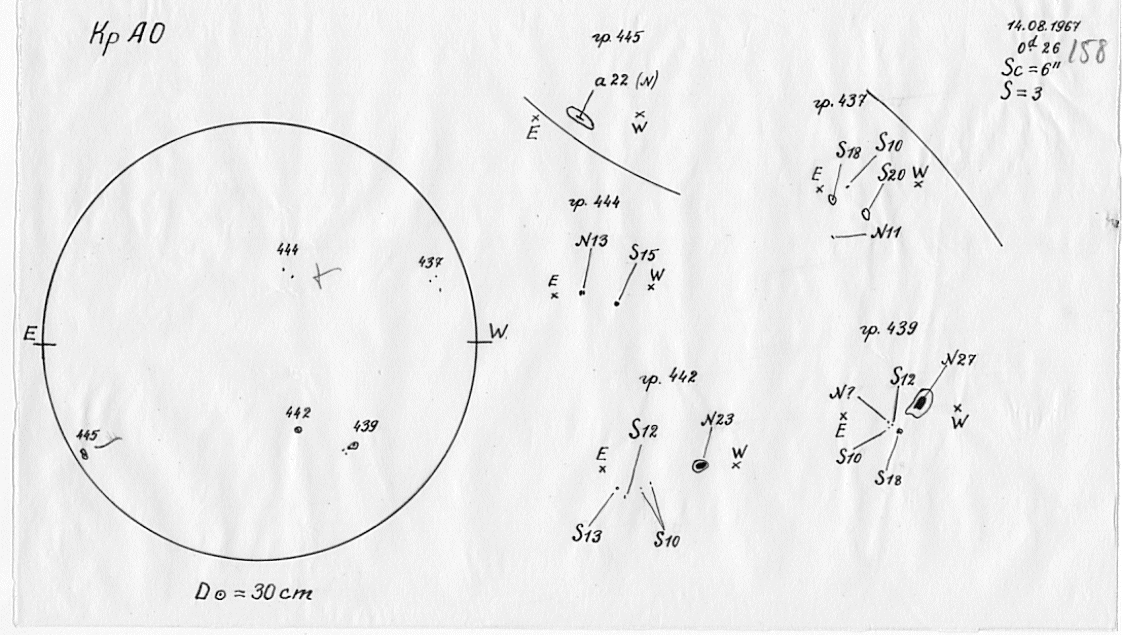 Кр АО
14.08.1967
0ᵈ 26
158
Sc = 6"
S = 3
гр. 445
a 22 (N)
E W
гр. 437
S18 S10
E S20 W
N11
гр. 444
N13 S15
E W
444
437
E W.
442
439
445
гр. 442
S12 N23
E W
S13 S10
гр. 439
N27
S12
N?
E W
S10
S18
D⊙ = 30 cm